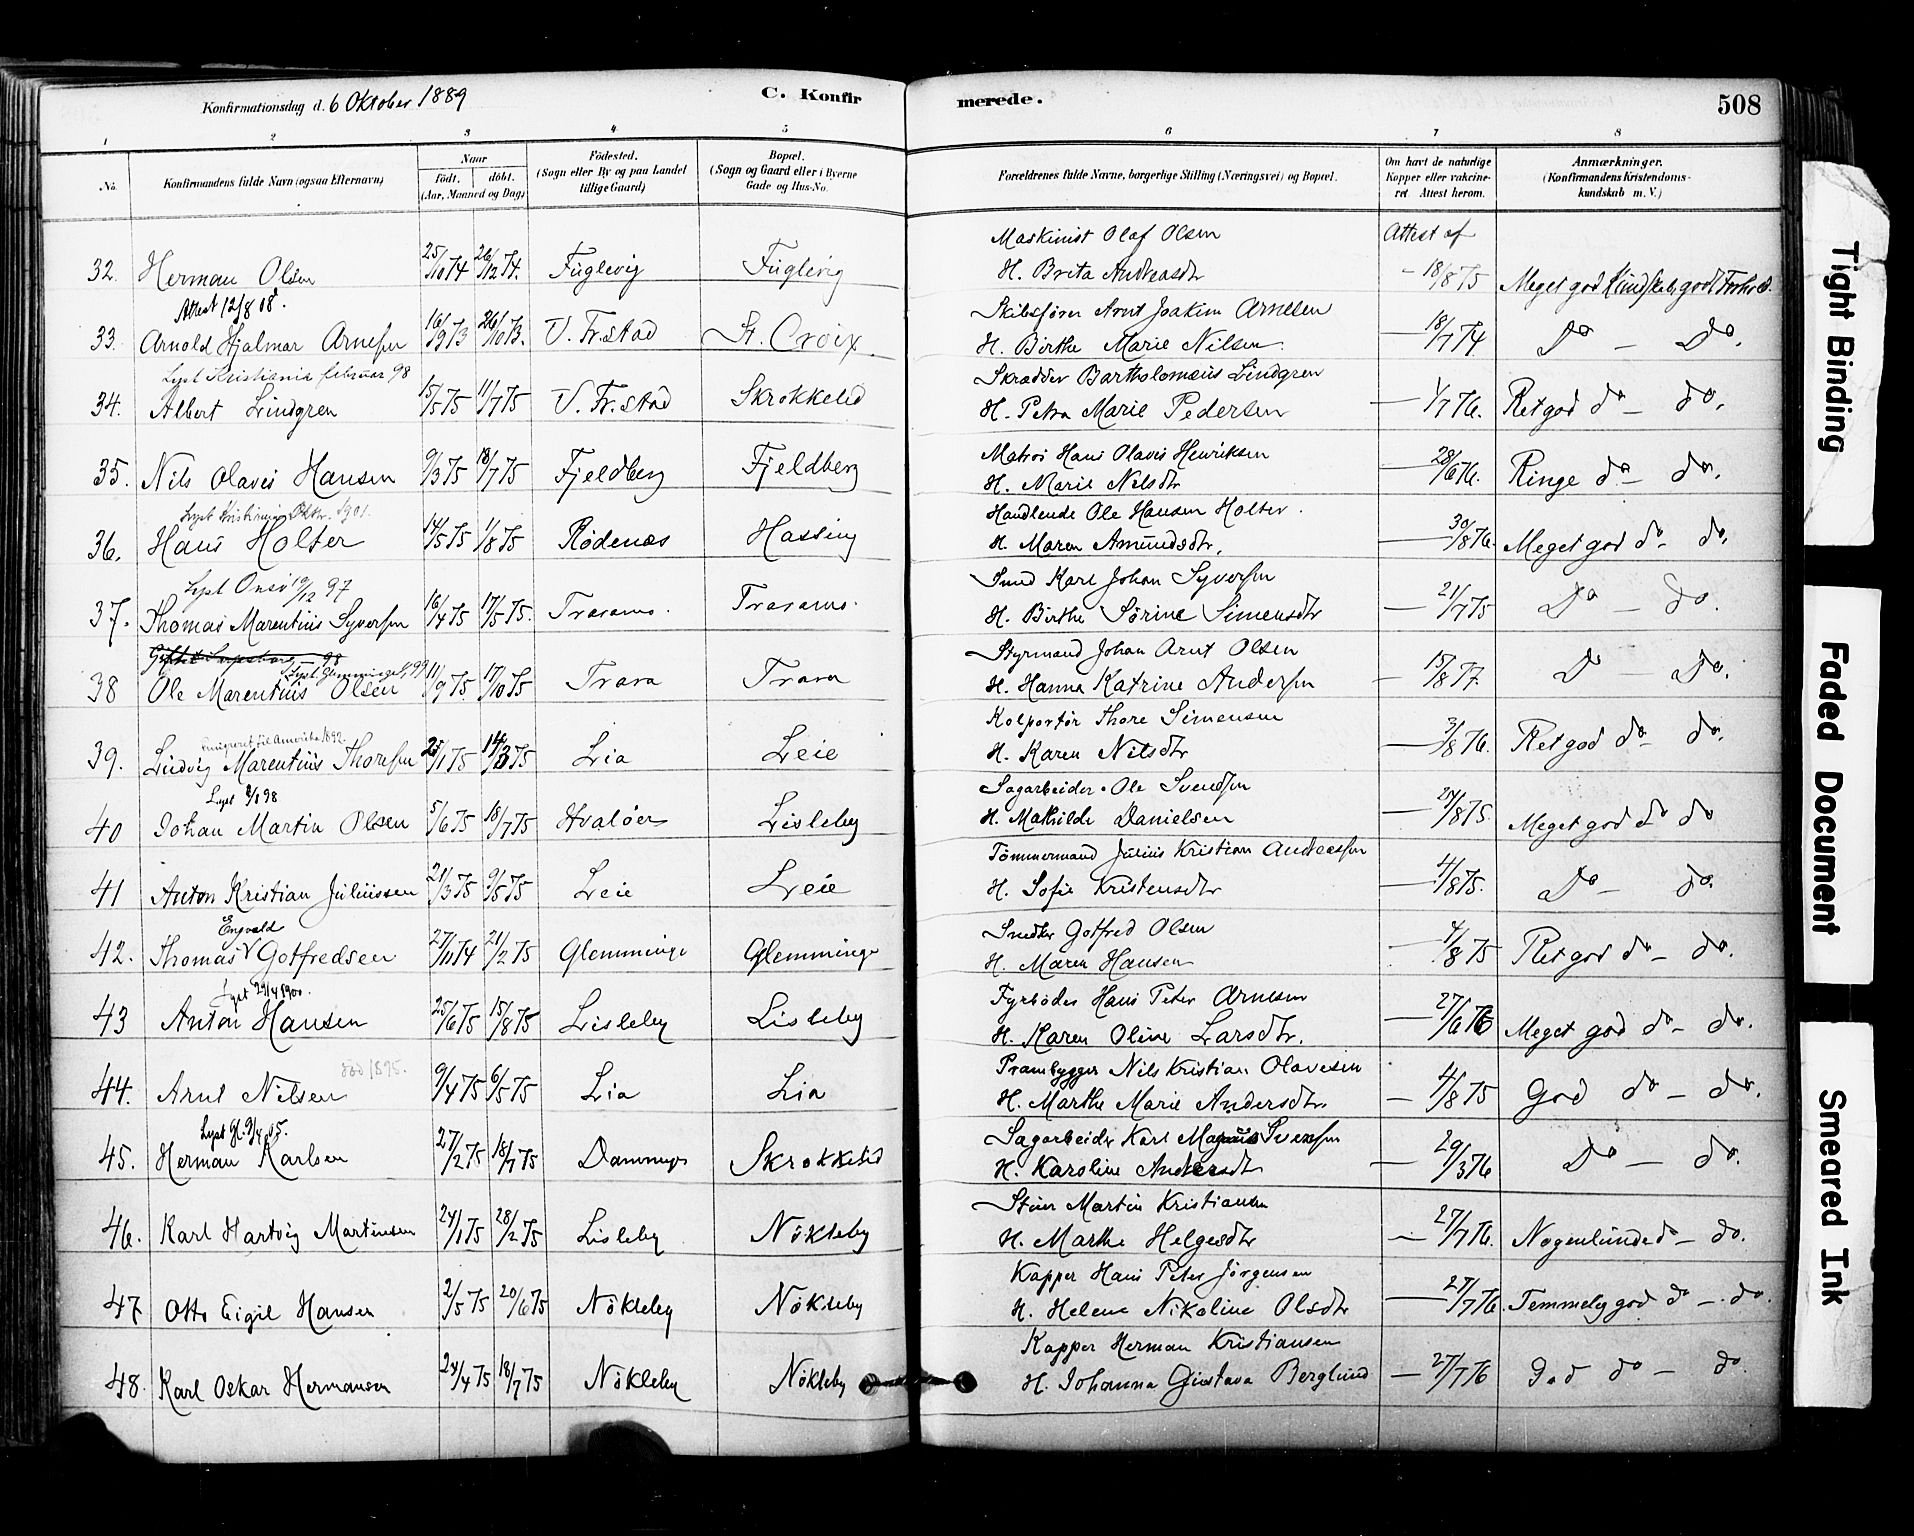 Konfirmationsdag d. 6 Oktober 1889
C. Konfir
merede.
508
1 2 3 4 5 6 7 8
No. Konfirmandens fulde Navn (ogsaa Efternavn)
Naar
født. døbt.
(Aar, Maaned og Dag)
Fødested.
(Sogn eller By og paa Landet
tillige Gaard)
Bopæl.
(Sogn og Gaard eller i Byerne
Gade og Hus-No.
Forældrenes fulde Navne, borgerlige Stilling (Næringsvei) og Bopæl.
Om havt de naturlige
Kopper eller vakcine-
ret. Attest herom.
Anmærkninger.
(Konfirmandens Kristendoms-
kundskab m. V.)
Maskinist Olaf Olsen Attest af
32. Herman Olsen 25/10 74 26/12 74. Fuglevig Fuglevig H. Brita Andreasdtr - 18/8 75 Meget god Kundskab god Forhold.
Attest 12/8 08.
Skibsfører Arnt Joakim Arnesen
33. Arnold Hjalmar Arnesen 16/9 73 26/10 73. V. Fr.stad St. Croix H. Birthe Marie Nilsen. — 18/7 74 Do — Do.
Lyst Kristiania februar 98
Skrædder Bartholomæus Lindgren
34. Albert Lindgren 15/5 75 11/7 75 V. Fr.stad Skrokkelid H. Petra Marie Pedersen — 1/7 76. Ret god do — do.
Matros Hans Olavis Henriksen
35. Nils Olavis Hansen 9/3 75 18/7 75 Fjeldberg Fjeldberg H. Marie Nilsdtr — 28/6 76. Ringe do — do.
Lyst Kristiania Oktbr. 1901.
Handlende Ole Hansen Holter.
36. Hans Holter 14/5 75 1/8 75 Rødenæs Hassing H. Maren Amundsdtr. — 30/8 76. Meget god do — do.
Lyst Onsø 19/12 97
Smed Karl Johan Syversen
37. Thomas Marentius Syversen 16/4 75 17/5 75. Trarams. Trarams. H. Birthe Sørine Simensdtr — 21/7 75 Do — do.
Giftet i Sarpsborg 98
Lyst Glemminge 99
Styrmand Johan Arnt Olsen
38 Ole Marentius Olsen 11/9 75. 17/10 75 Trara Trara H. Hanna Katrine Andersen — 15/8 77. Do — Do.
Emigreret til Amerika 1892.
Kolportør Thore Simensen
39. Ludvig Marentius Thoresen 25/1 75 14/3 75 Lia Leie H. Karen Nilsdtr — 3/8 76. Ret god do — do.
Sagarbeider Ole Svendsen
40 Johan Martin Olsen 5/6 75 18/7 75 Hvaløer Lisleby H. Mathilde Danielsen — 24/8 75. Meget god do do
Tømmermand Julius Kristian Andreassen
41 Anton Kristian Juliussen 21/3 75 9/5 75 Leie Leie H. Sofie Kristensdtr — 4/8 75. Do — do.
Engvald
Snedker Gotfred Olsen
42. Thomas V Gotfredsen 27/11 74 21/2 75 Glemminge Glemminge H. Maren Hansen — 4/8 75 Ret god do — do.
Lyst 29/4 1900.
Fyrbøder Hans Peter Arnesen
43 Anton Hansen 25/6 75 15/8 75 Lisleby Lisleby H. Karen Oline Larsdtr. — 27/6 76 Meget god do — do.
død 1895.
Prambygger Nils Kristian Olavesen
44. Arnt Nilsen 9/4 75 6/5 75 Lia Lia H. Marthe Marie Andersdtr. — 4/8 75 God do — do.
Lyst Gl. 9/4 05.
Sagarbeider Karl Magnus Svensen
45. Herman Karlsen 27/2 75 18/7 75 Dammyr Skrokkelid H. Karoline Andersdtr — 29/3 76 Do — do.
Stuer Martin Kristiansen
46. Karl Hartvig Martinsen 24/1 75 28/2 75 Lisleby Nökleby H. Marthe Helgesdtr — 27/7 76. Nogenlunde do — do.
Kapper Hans Peter Jörgensen
47 Otto Eigil Hansen 2/5 75 20/6 75 Nökleby Nökleby H. Helene Nikoline Olsdtr — 27/7 76. Temmelig god do — do.
Kapper Herman Kristiansen
48. Karl Oskar Hermansen 24/4 75 18/7 75 Nökleby Nökleby H. Johanna Gustava Berglund — 27/7 76 God do — do.
Tight Binding
Faded Document
Smeared Ink